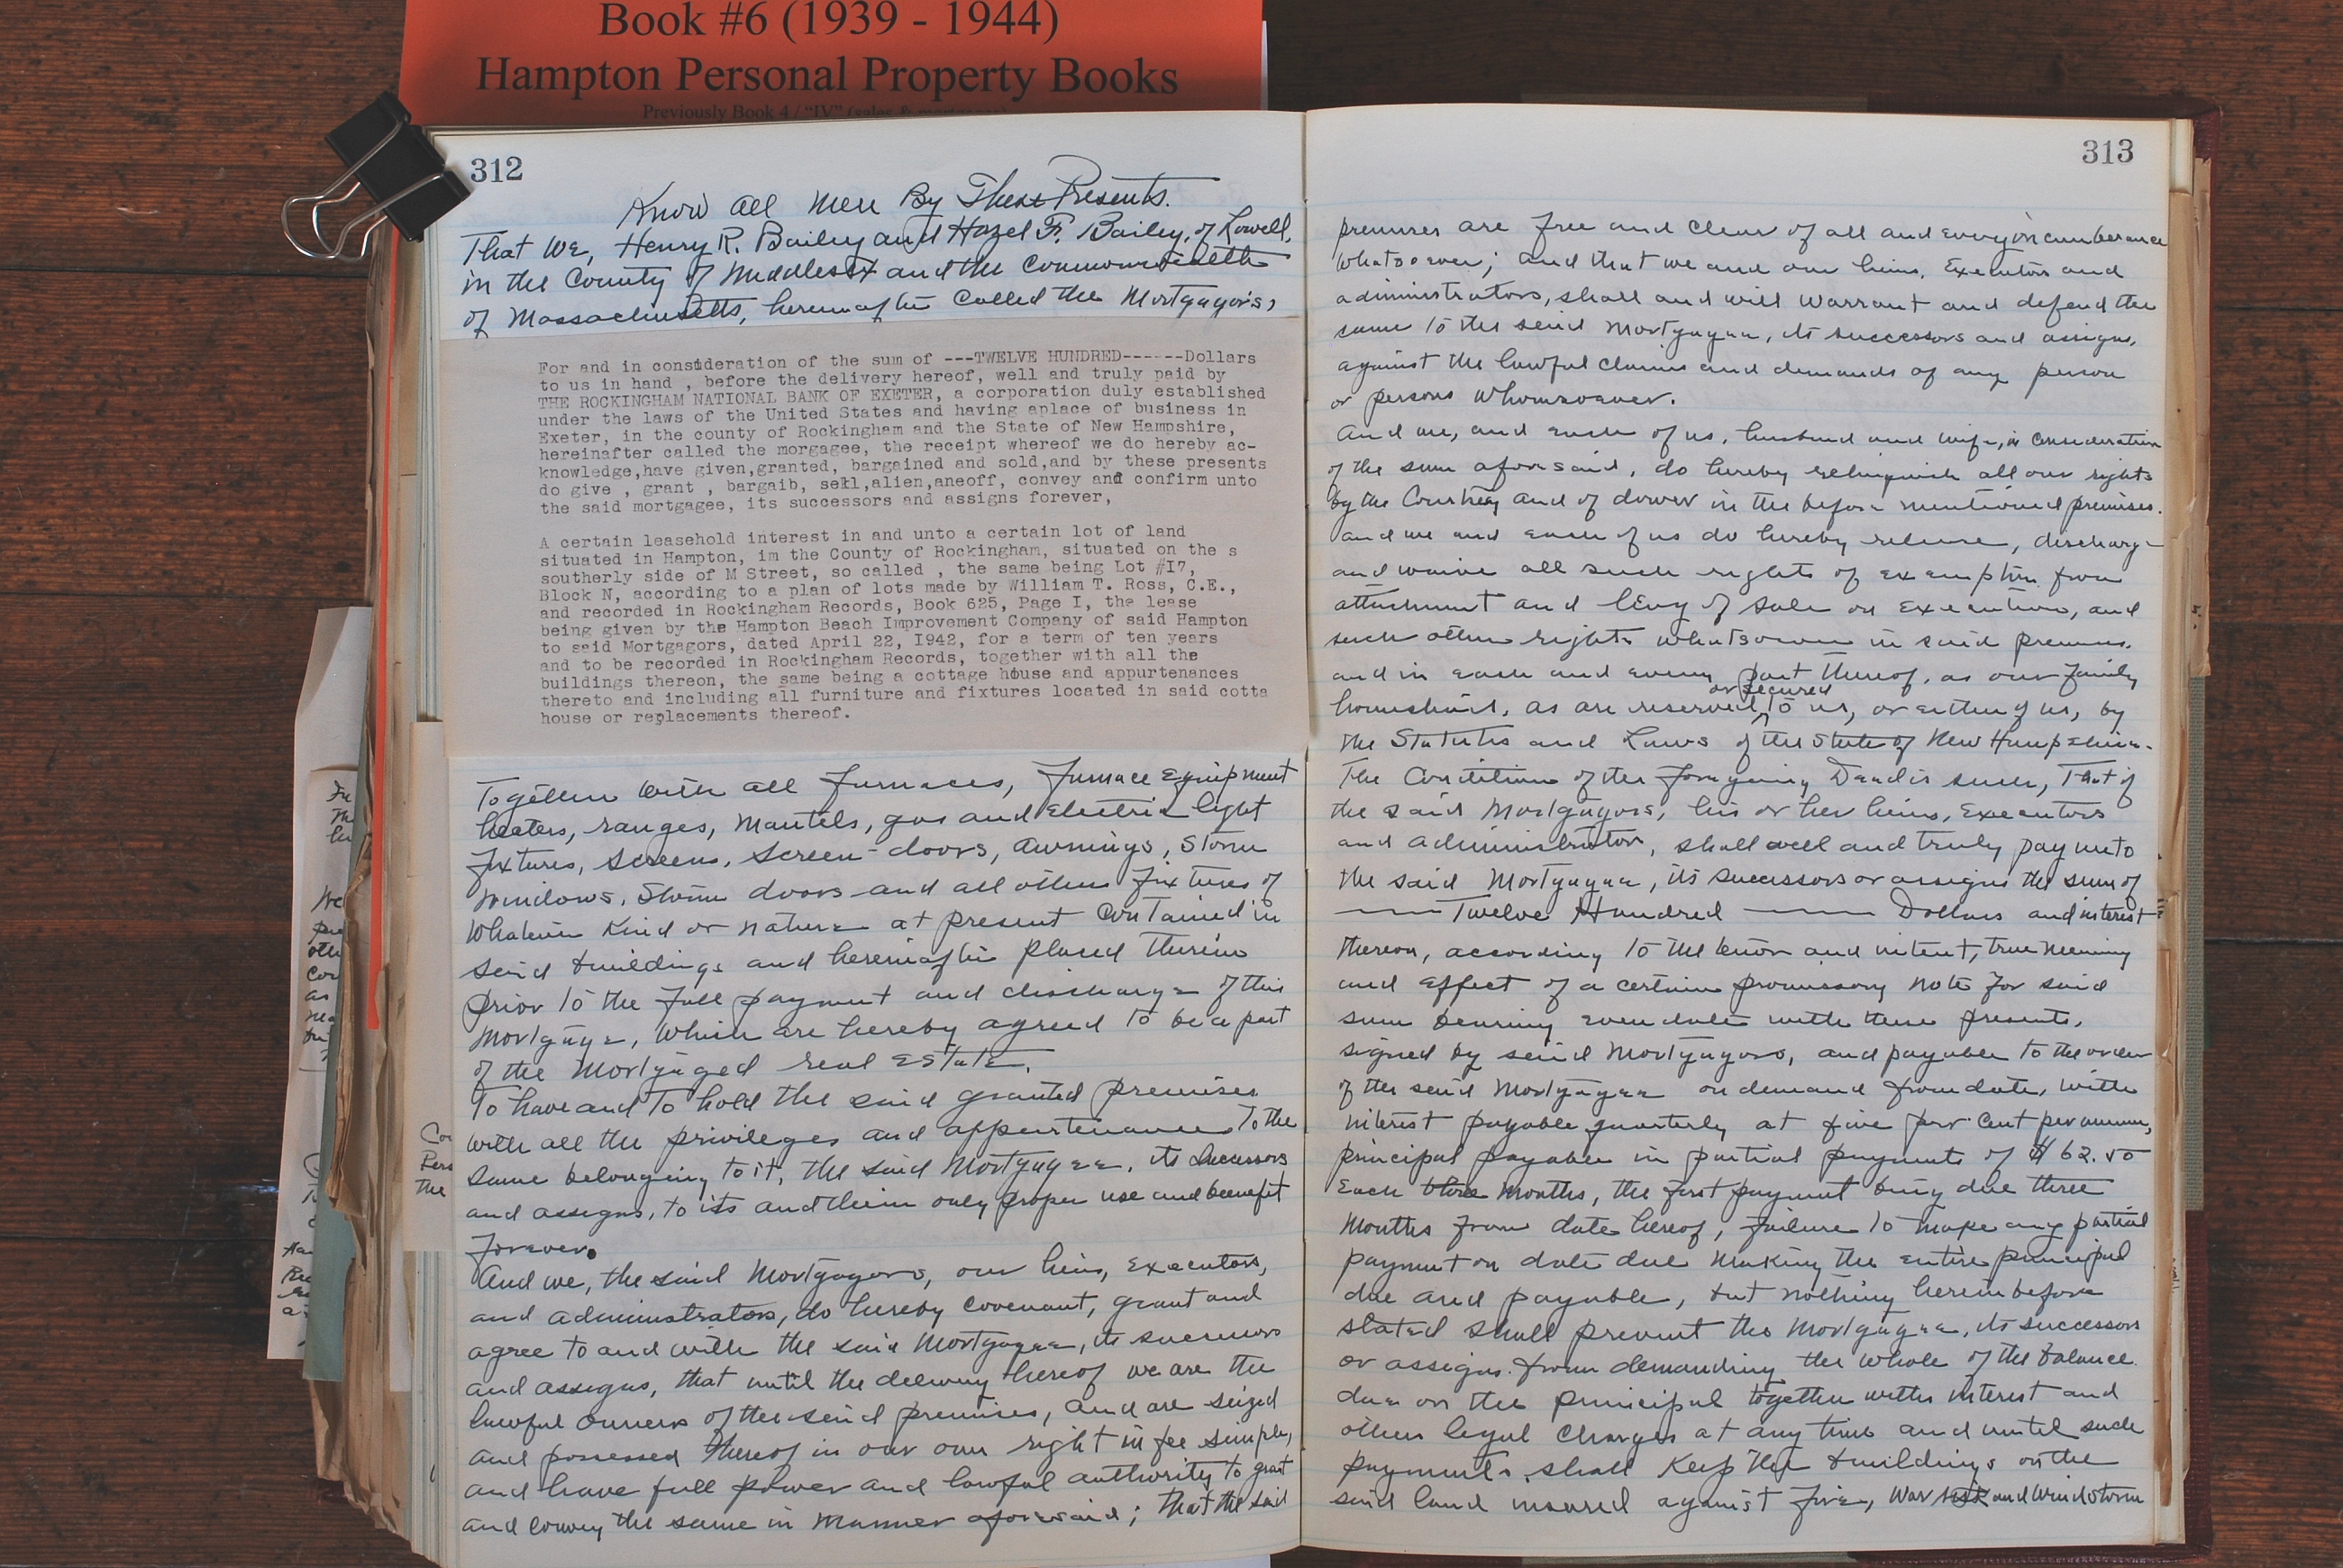 Book #6 (1939 - 1944)
Hampton Personal Property Books
Previously Book 4 / "IV" (sales & mortgages)
312
Know All Men By These Presents.
That We, Henry R. Bailey and Hazel F. Bailey, of Lowell,
in the County of Middlesex and the Commonwealth
of Massachusetts, hereinafter Called the Mortgagors,
For and in consideration of the sum of ---TWELVE HUNDRED------Dollars
to us in hand , before the delivery hereof, well and truly paid by
THE ROCKINGHAM NATIONAL BANK OF EXETER, a corporation duly established
under the laws of the United States and having aplace of business in
Exeter, in the county of Rockingham and the State of New Hampshire,
hereinafter called the morgagee, the receipt whereof we do hereby ac-
knowledge,have given,granted, bargained and sold,and by these presents
do give , grant , bargaib, sell,alien,aneoff, convey and confirm unto
the said mortgagee, its successors and assigns forever,
A certain leasehold interest in and unto a certain lot of land
situated in Hampton, im the County of Rockingham, situated on the s
southerly side of M Street, so called , the same being Lot #I7,
Block N, according to a plan of lots made by William T. Ross, C.E.,
and recorded in Rockingham Records, Book 625, Page I, the lease
being given by the Hampton Beach Improvement Company of said Hampton
to said Mortgagors, dated April 22, I942, for a term of ten years
and to be recorded in Rockingham Records, together with all the
buildings thereon, the same being a cottage house and appurtenances
thereto and including all furniture and fixtures located in said cotta
house or replacements thereof.
Together with all furnaces, furnace equipment
heaters, ranges, mantels, gas and electric light
fixtures, screens, screen-doors, awnings, storm
windows, storm doors and all other fixtures of
whatever kind or nature at present contained in
said buildings and hereinafter placed therein
prior to the full payment and discharge of this
mortgage, which are hereby agreed to be a part
of the mortgaged real estate.
To have and to hold the said granted premises
with all the privileges and appurtenances to the
same belonging to it, the said Mortgagee, its successors
and assigns, to its and their only proper use and benefit
forever.
And we, the said Mortgagors, our heirs, executors,
and administrators, do hereby covenant, grant and
agree to and with the said Mortgagee, its successors
and assigns, that until the delivery hereof we are the
lawful owners of the said premises, and are seized
and possessed thereof in our own right in fee simple,
and have full power and lawful authority to grant
and convey the same in manner aforesaid; that the said
313
premises are free and clear of all and every incumberance
whatsoever; and that we and our heirs, executors and
administrators, shall and will warrant and defend the
same to the said Mortgagee, its successors and assigns,
against the lawful claims and demands of any person
or persons whomsoever.
And we, and each of us, husband and wife, in consideration
of the sum aforesaid, do hereby relinquish all our rights
by the Courtesy and of dower in the before mentioned premises.
and we and each of us do hereby release, discharge
and waive all such rights of exemption from
attachment and levy of sale on execution, and
such other rights whatsoever in said premises.
and in each and every part thereof, as our family
or secured
homestead, as are reserved to us, or either of us, by
the Statutes and Laws of the State of New Hampshire.
The Condition of the foregoing Deed is such, That if
the said Mortgagors, his or her heirs, executors
and administrators, shall well and truly pay unto
the said Mortgagee, its successors or assigns the sum of
Twelve Hundred Dollars and interest
thereon, according to the tenor and intent, true meaning
and effect of a certain promissory note for said
sum bearing even date with these presents,
signed by said Mortgagors, and payable to the order
of the said Mortgagee on demand from date, with
interest payable quarterly at five per cent per annum,
principal payable in partial payments of $62.50
each three months, the first payment being due three
months from date hereof, failure to make any partial
payment on date due making the entire principal
due and payable, but nothing hereinbefore
stated shall prevent the Mortgagee, its successors
or assigns from demanding the whole of the balance
due on the principal together with interest and
other legal charges at any time and until such
payments shall keep the buildings on the
said land insured against fire, war risk and windstorm